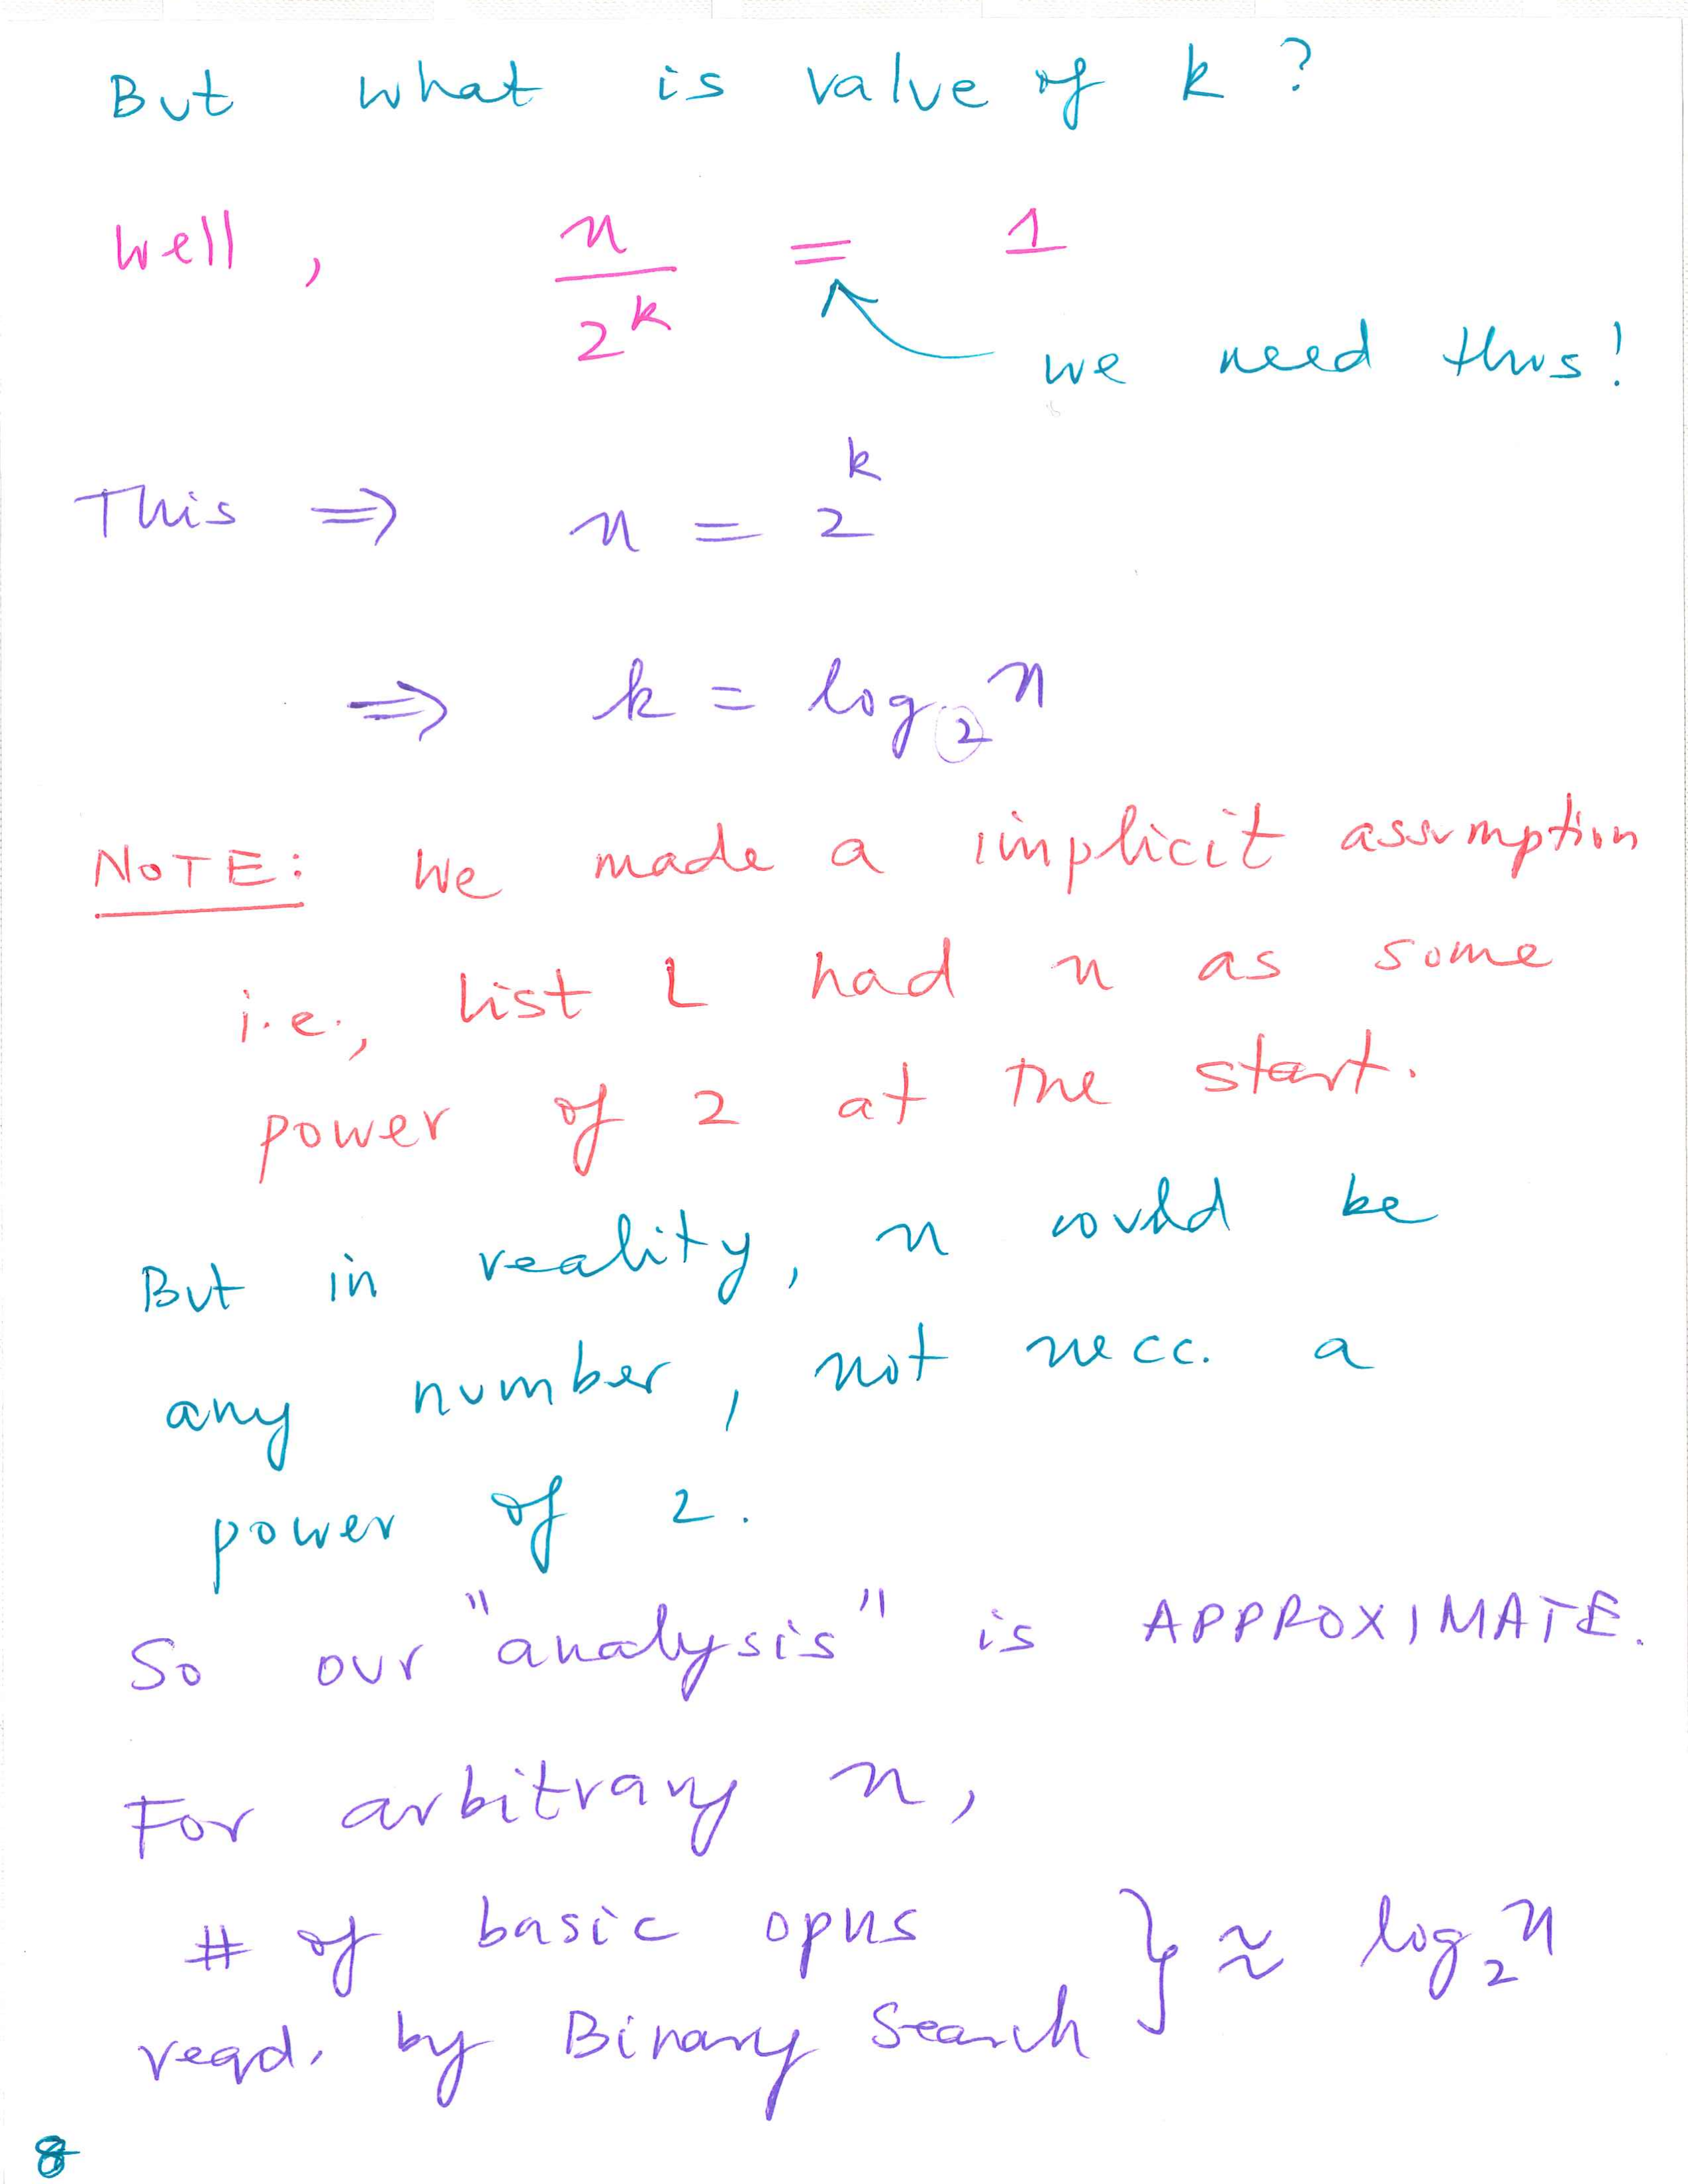 But what is value of k ?
Well , n/2^k = 1
we need this!
This ⇒ n = 2^k
⇒ k = log₂ n
NOTE: We made a implicit assumption
i.e., list L had n as some
power of 2 at the start.
But in reality, n could be
any number, not necc. a
power of 2.
So our "analysis" is APPROXIMATE.
For arbitrary n,
# of basic opns } ≈ log₂ n
reqd. by Binary Search
8